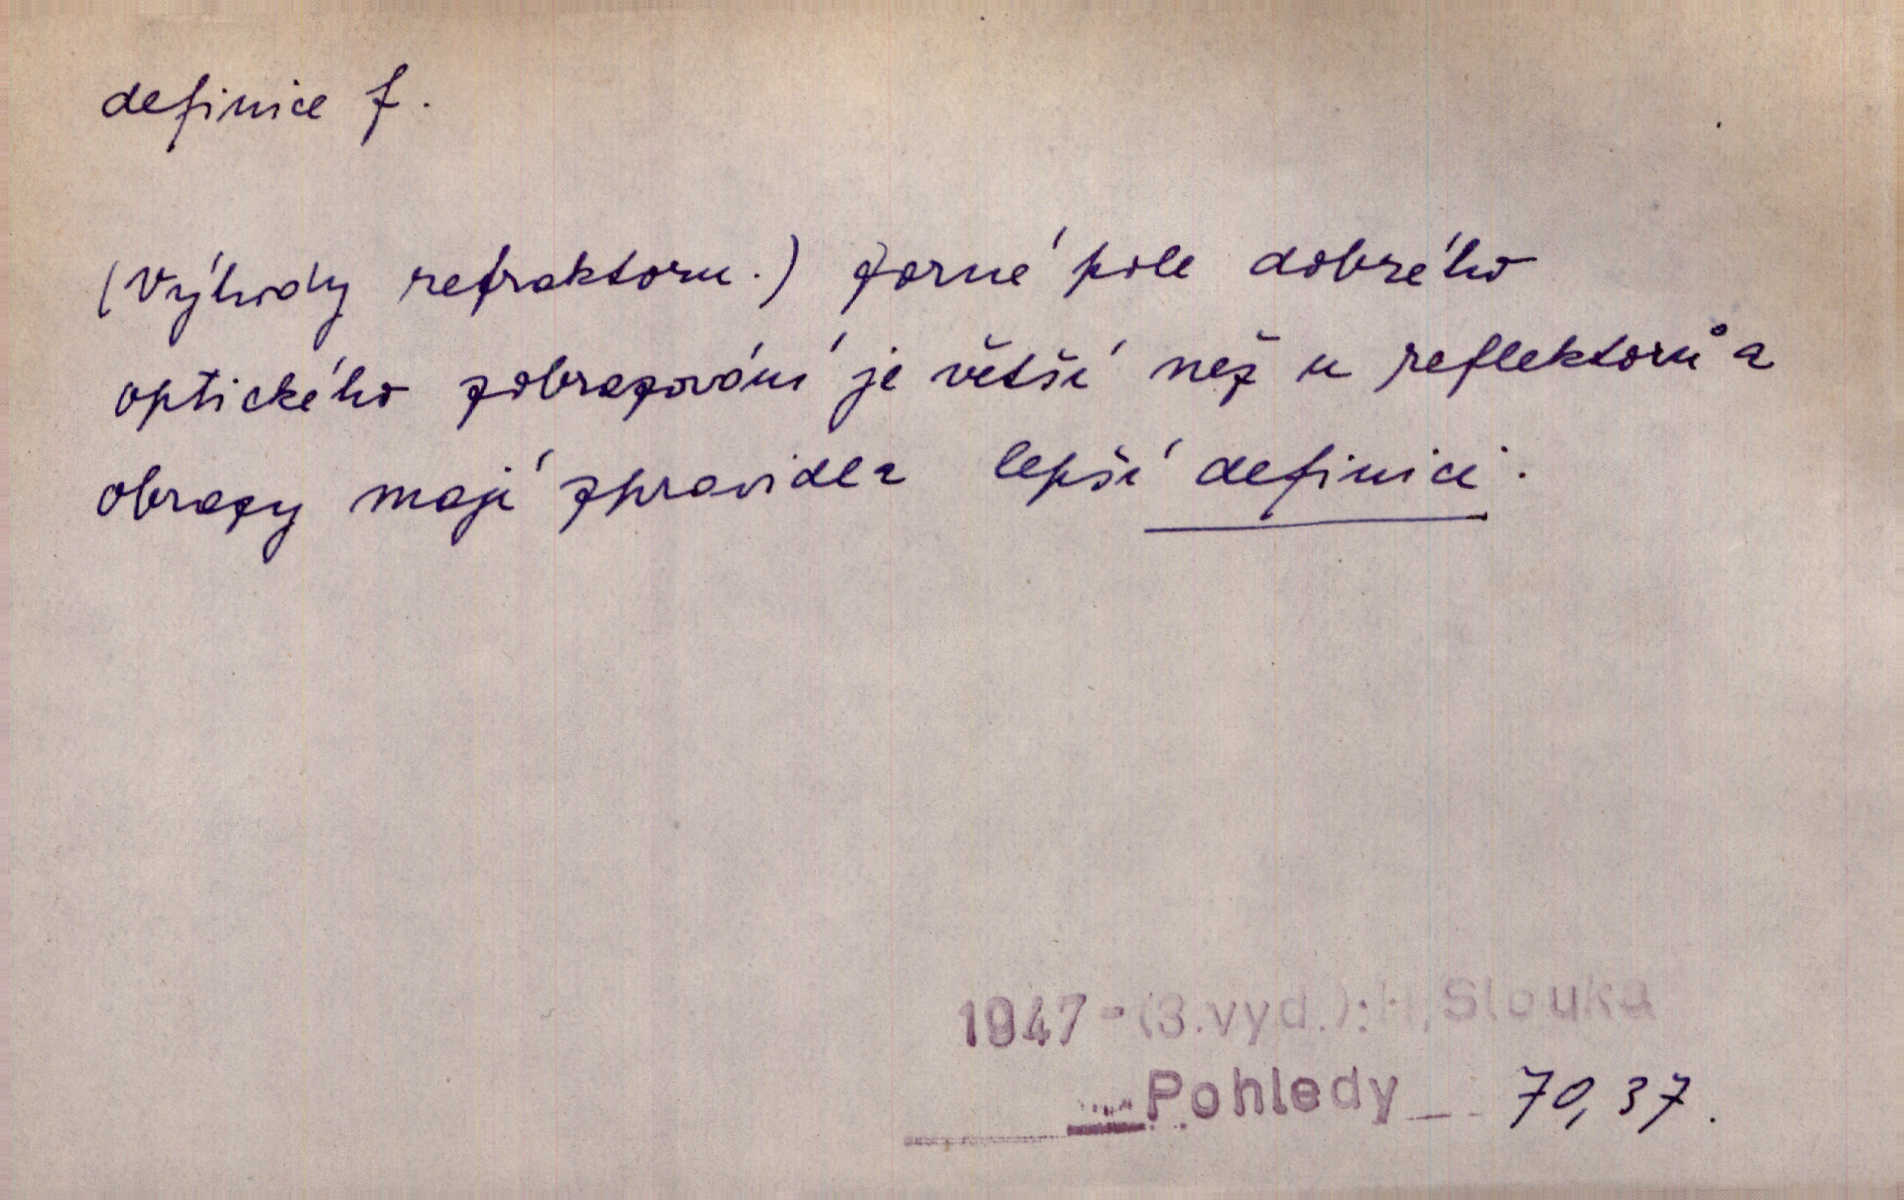 definice f.
(Výhody refraktoru.) zorné pole dobrého
optického zobrazování je větší než u reflektorů a
obrazy mají zpravidla lepší definici.
1947-(3.vyd.):H.Slouka
Pohledy 70,37.